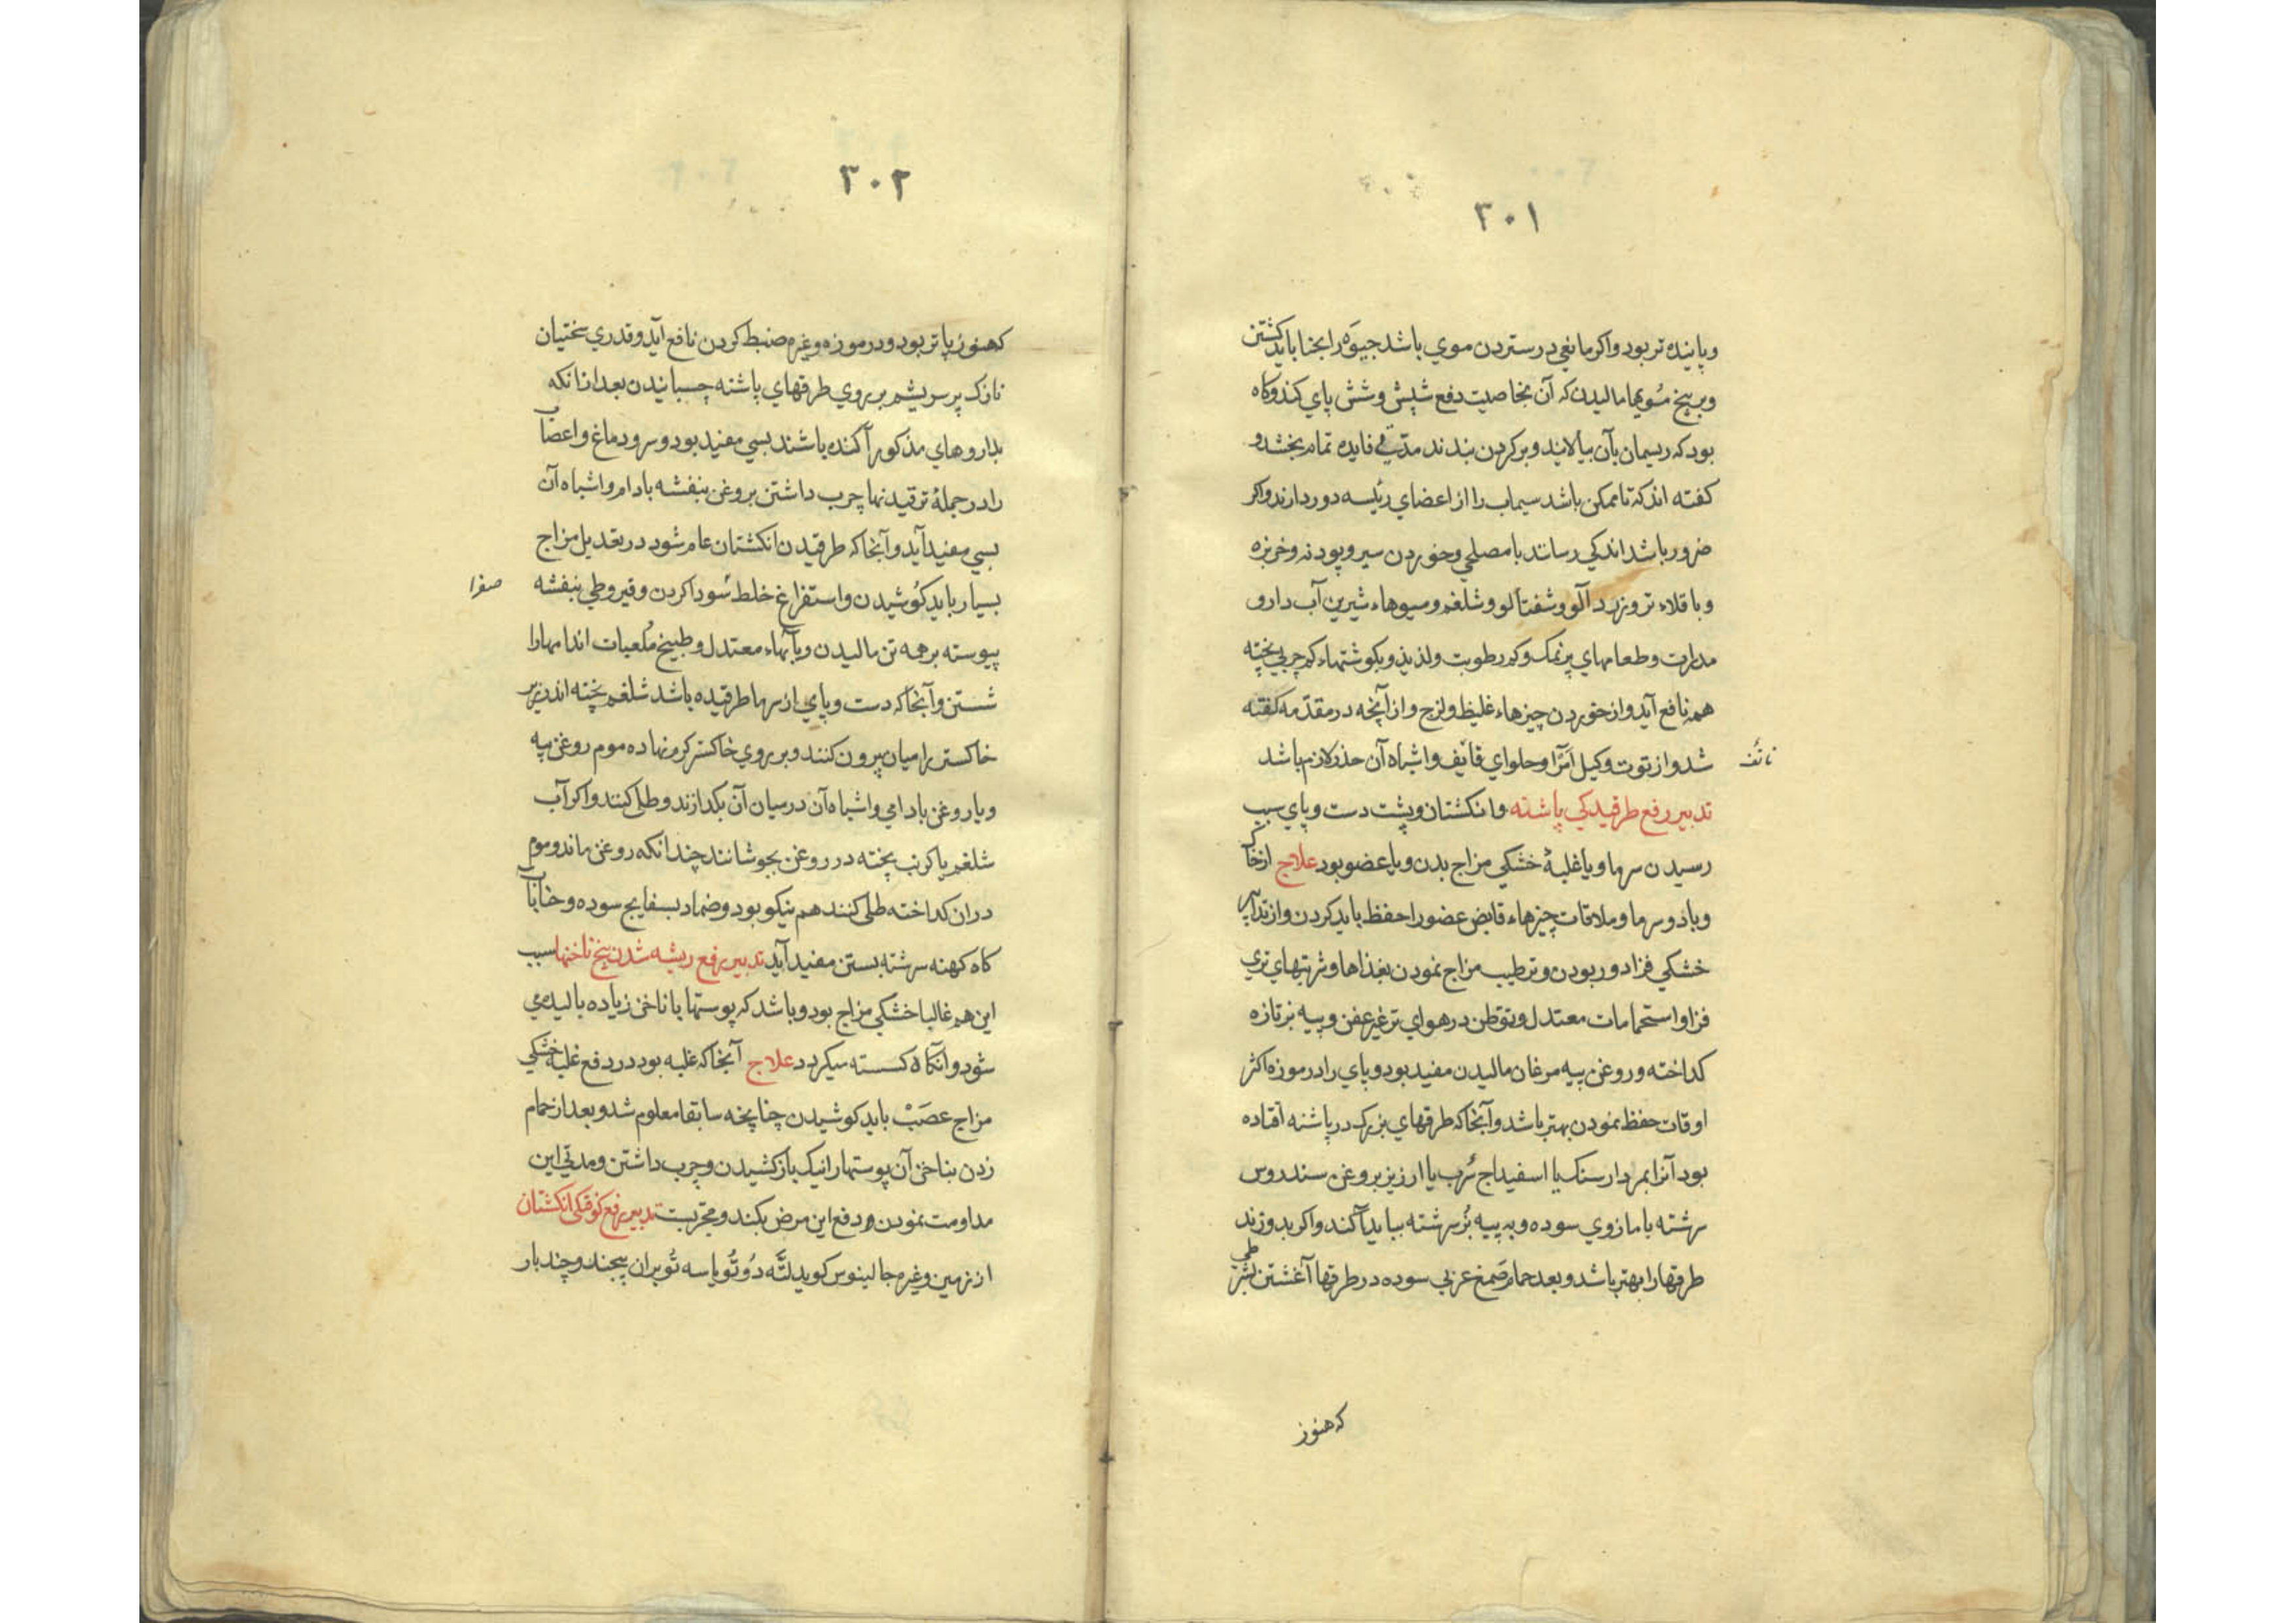 ٣٠١
و پاینده تر بود و اکر مانعي در ستردن موي باشد جیوَه را بحنا باید کشتن
و بر بیخ مُویها مالیدن که آن بخاصیت دفع شپش و شش پاي کند و کاه
بود که ریسمان بآن بیالایند و بر کردن بندند مدّتي فایده تمام بخشد و
کفته اند که تا ممکن باشد سیماب را از اعضاي رئیسه دور دارند و اکر
ضرور باشد اندکي رسانند با مصلحي و خوردن سیر و پودنه و خربزه
و باقلاء تر و زردآلو و شفتالو و شلغم و میوهاء شیرین آب دار و
مدرات و طعامهاي پرنمک و کم رطوبت و لذیذ و بکوشتهاء کم چربي پخته
همه نافع آید و از خوردن چیزهاء غلیظ و لزج و از آنچه در مقدّمه کفته
شد و از توت و کیل اَمرَا و حلواي قایف و اشباه آن حذر لازم باشد
ناتف
تدبیر رفع طرقیدکي پاشنه و انکشتان و پشت دست و پاي سبب
رسیدن سرما و یا غلبهٔ خشکي مزاج بدن و یا عضو بود علاج از خاک
و باد و سرما و ملاقات چیزهاء قابض عضو را حفظ باید کردن و از تدابیر
خشکي فزا دور بودن و ترطیب مزاج نمودن بغذاها و شربتهاي تري
فزا و استحمامات معتدل و توطن در هواي تر غیر عفن و پیه بز تازه
کداخته و روغن پیه مرغان مالیدن مفید بود و پاي را در موزه اکثر
اوقات حفظ نمودن بهتر باشد و آنجا که طرقهاي بزرک در پاشنه افتاده
بود آنرا بمردارسنک یا اسفیداج سُرب یا ارزیز بروغن سندروس
سرشته یا مازوي سوده و به پیه بُز سرشته بباید آکند و اکر بدوزند
طرقها را بهتر باشد و بعد حمام صَمغ عربي سوده در طرقها آغشتن بشرطي
که هنوز
٣٠٢
که هنوز پا تر بود و در موزه و غیره ضبط کردن نافع آید و قدري سختیان
نازک پر سریشم بر روي طرقهاي پاشنه چسبانیدن بعد از انکه
بداروهاي مذکور آکنده باشند بسي مفید بود و سر و دماغ و اعصاب
را در جملهٔ ترقیدنها چرب داشتن بروغن بنفشه بادام و اشباه آن
بسي مفید آید و آنجا که طرقیدن انکشتان عام شود در تعدیل مزاج
بسیار باید کوُشیدن و استفراغ خلط سُودا کردن و قیروطي بنفشه
صفرا
پیوسته بر همه تن مالیدن و بآبهاء معتدل و طبیخ مُلعبات اندامها را
شستن و آنجا که دست و پاي از سرما طرقیده باشد شلغم پخته اندر زیر
خاکستر را میان بیرون کنند و بر روي خاکستر کرم نهاده موم روغن پیه
و یا روغن بادامي و اشباه آن در میان آن بکدازند و طلي کنند و اکر آب
شلغم یا کرنب پخته در روغن بجوشانند چندانکه روغن ماند و موم
دران کداخته طلي کنند هم نیکو بود و ضماد بسفایج سوده و حنا باب
کاه کهنه سرشته بستن مفید آید تدبیر رفع ریشه شدن بیخ ناخنها سبب
این هم غالبا خشکي مزاج بود و باشد که پوستها با ناخن زیاده بالیده مي
شود و آنکاه کسسته میکردد علاج آنجا که غلبه بود در دفع غلبه خشکي
مزاج عصَبْ باید کوشیدن چنانچه سابقا معلوم شد و بعد از حمام
زدن بناخن آن پوستها را نیک باز کشیدن و چرب داشتن و مدتي این
مداومت نمودن و دفع این مرض بکند و مجربست تدبیر رفع کوفتکي انکشتان
از زمین و غیره جالینوس کوید لتَّه دُو تُو یا سه تُو بران پیچند و چند بار